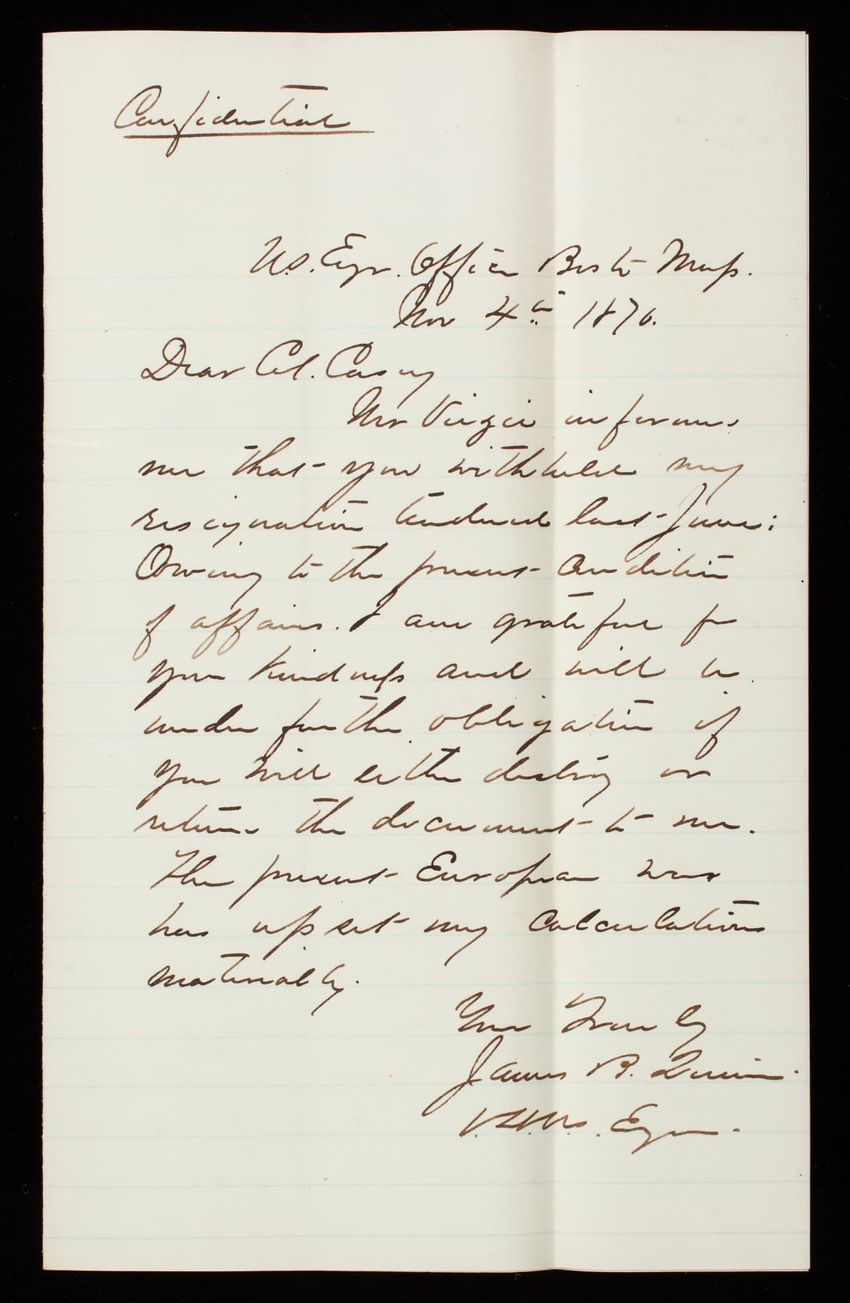 Confidential
U.S. Engr. Office Bost. Mass.
Nov 4th 1870.
Dear Col. Casey
Mr Virgin informs
me that you withheld my
resignation tendered last June:
Owing to the present condition
of affairs. I am grateful for
your kindness and will be
under further obligation if
you will either destroy or
return the document to me.
The present European war
has upset my calculations
materially.
Yours Truly
James B. Quinn
Engr.